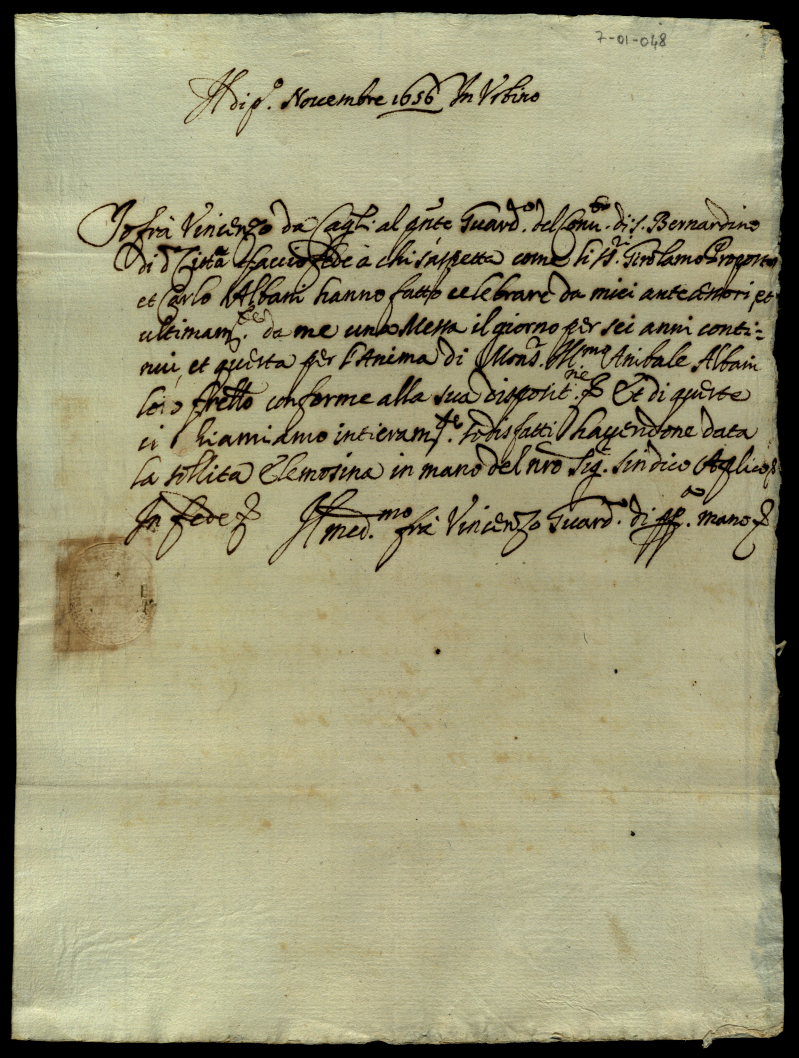 7-01-048
Adi p.º Nouembre 1656 In Vrbino
Io frà Vincenzo da Cagli al pnte Guard.º del Conu.to di S. Bernardino
di d.ª Città faccio fede à chi s'aspetta come li SS.ri Girolamo Proposto
et Carlo Albani hanno fatto celebrare da miei antecessori et
ultimam.te da me una Messa il giorno per sei anni conti=
nui, et questa per l'Anima di Mons.r Ill.mo Anibale Albani
loro frello conforme alla sua disposit.ne Et di queste
ci chiamiamo intieram.te sodisfatti hauendone data
la sollita Elemosina in mano del nro Sig.r Sindico Apl̃ico
In fede Il med.mo frà Vincenzo Guard.º di pp.ª mano